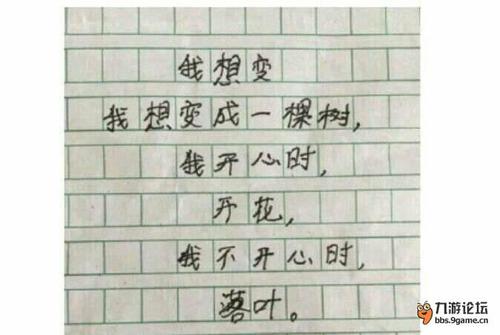 我想变
我想变成一棵树，
我开心时，
开花，
我不开心时，
落叶。
九游论坛
bbs.9game.cn